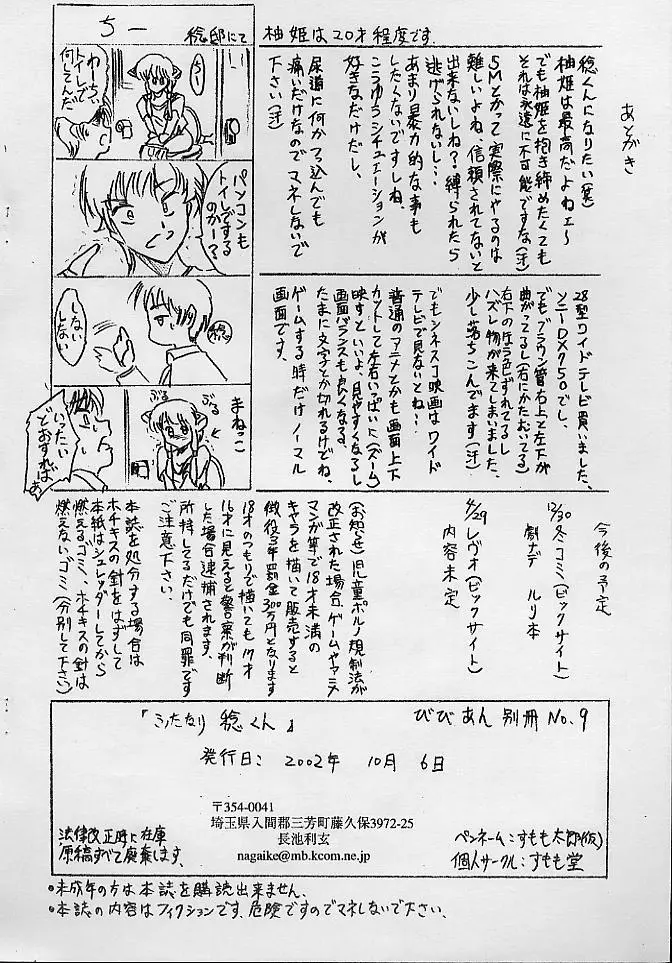 あとがき
稔くんになりたい(爆)
柚姫は最高だよねェ～
でも柚姫を抱き締めたくても
それは永遠に不可能ですな(汗)
SMとかって実際にやるのは
難しいよね、信頼されてないと
出来ないしね?縛られたら
逃げられないし…
あまり暴力的な事も
したくないですしね、
こうゆうシチュエーションが
好きなだけだし、
尿道に何かつっ込んでも
痛いだけなのでマネしないで
下さい(汗)
柚姫は20才程度です.
稔邸にて
ちー
うー
わーちぃ
トイレで
何してんだ
パソコンも
トイレでする
のかー?
稔
しない
しない
まねっこ
ぶる
ぶる
いったい
どおすれば
あ
28型ワイドテレビ買いました、
ソニーDX750でし、
でもブラウン管右上と左下が
曲がってるし(右にかたむいてる)
右下の方ラ色ずれてるし
ハズレ物が来てしまいました、
少し落ちこんでます(汗)
でもシネスコ映画はワイド
テレビで見ないとね!
普通のアニメとかも画面上下
カットして左右いっぱいに(ズーム)
映すといいよ、見やすくなるし
画面バランスも良くなる、
たまに文字とか切れるけどね、
ゲームする時だけノーマル
画面です、
今後の予定
12/30冬コミ(ビックサイト)
劇ナデ ルリ本
4/29レヴォ(ビックサイト)
内容未定
(お知らせ)児童ポルノ規制法が
改正された場合、ゲームやアニメ
マンガ等で18才未満の
キャラを描いて販売すると
懲役3年罰金300万円となります
18才のつもりで描いても17才
16才に見えると警察が判断
した場合逮捕されます.
所持してるだけでも同罪です
ご注意下さい、
本誌を処分する場合は
ホチキスの針をはずして
本紙はシュレッダーしてから
燃えるゴミ、ホチキスの針は
燃えないゴミ(分別して下さい)
『ふたなり 稔くん』
びびあん 別冊 No.9
発行日: 2002年 10月 6日
〒354-0041
埼玉県入間郡三芳町藤久保3972-25
長池利玄
nagaike@mb.kcom.ne.jp
法律改正時に在庫
原稿すべて廃棄します.
ペンネーム:すもも太郎(仮)
個人サークル:すもも堂
・未成年の方は本誌を購読出来ません.
・本誌の内容はフィクションです.危険ですのでマネしないで下さい.